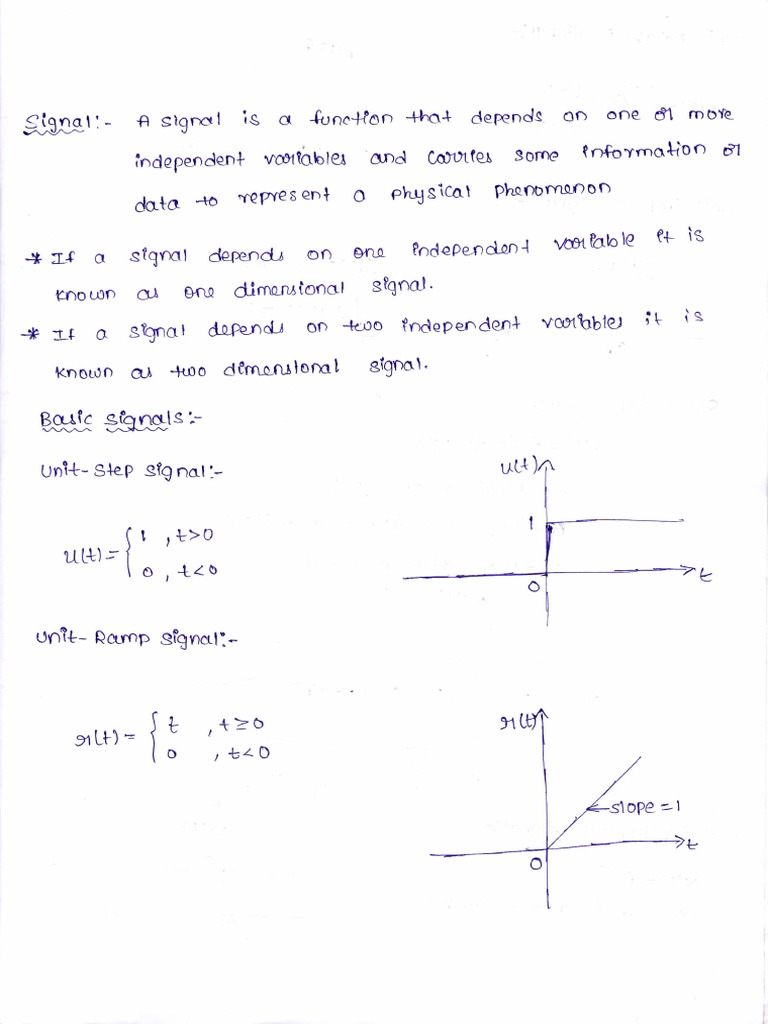 Signal:- A signal is a function that depends on one or more
independent variables and carries some information or
data to represent a physical phenomenon
* If a signal depends on one independent variable it is
known as one dimensional signal.
* If a signal depends on two independent variables it is
known as two dimensional signal.
Basic signals:-
Unit-Step signal:-
u(t) = { 1 , t>0
0 , t<0
u(t)
1
0
t
Unit-Ramp signal:-
r(t) = { t , t≥0
0 , t<0
r(t)
slope = 1
0
t